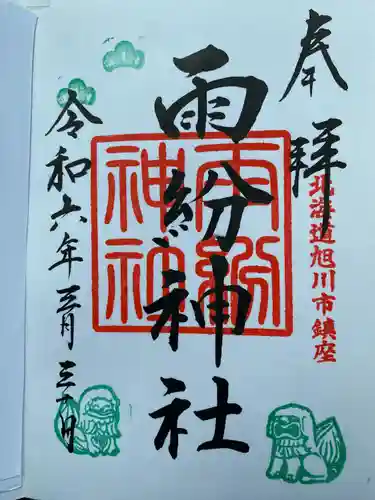 奉拝
北海道旭川市鎮座
雨紛神社
雨紛神社
令和六年三月三十日